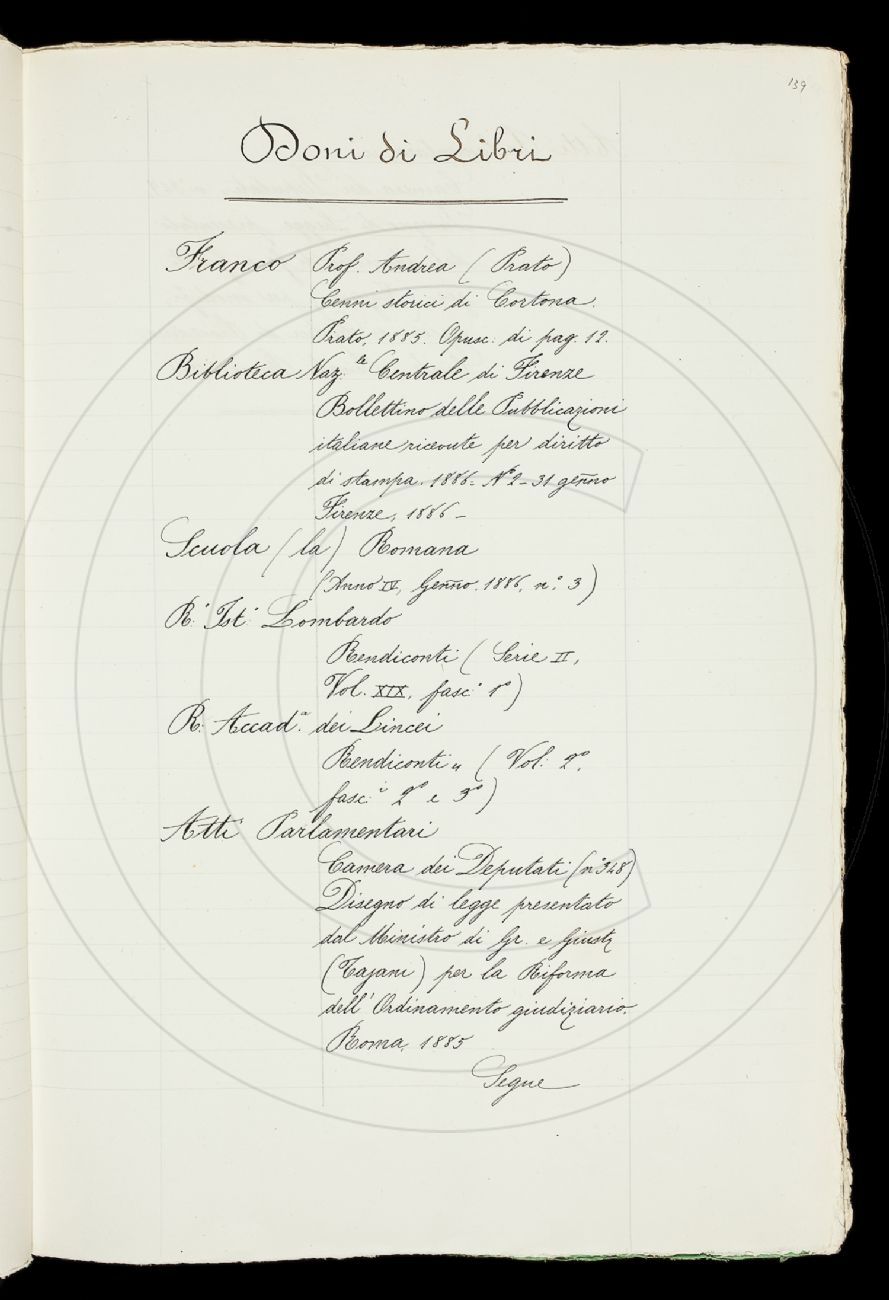 139
Doni di Libri
Franco Prof. Andrea (Prato)
Cenni storici di Cortona.
Prato, 1885. Opusc. di pag. 12.
Biblioteca Naz.le Centrale di Firenze
Bollettino delle Pubblicazioni
italiane ricevute per diritto
di stampa. 1886. N° 2 - 31 genno
Firenze, 1886 -
Scuola (la) Romana
(Anno IV, Genno. 1886, n.° 3)
R.° Ist.° Lombardo
Rendiconti (Serie II,
Vol. XIX, fasc.° 1°)
R. Accad.a dei Lincei
Rendiconti „ (Vol. 2°,
fasc.i 2° e 3°)
Atti Parlamentari
Camera dei Deputati (n° 348)
Disegno di legge presentato
dal Ministro di Gr. e Giustz
(Tajani) per la Riforma
dell' Ordinamento giudiziario.
Roma, 1885
Segue